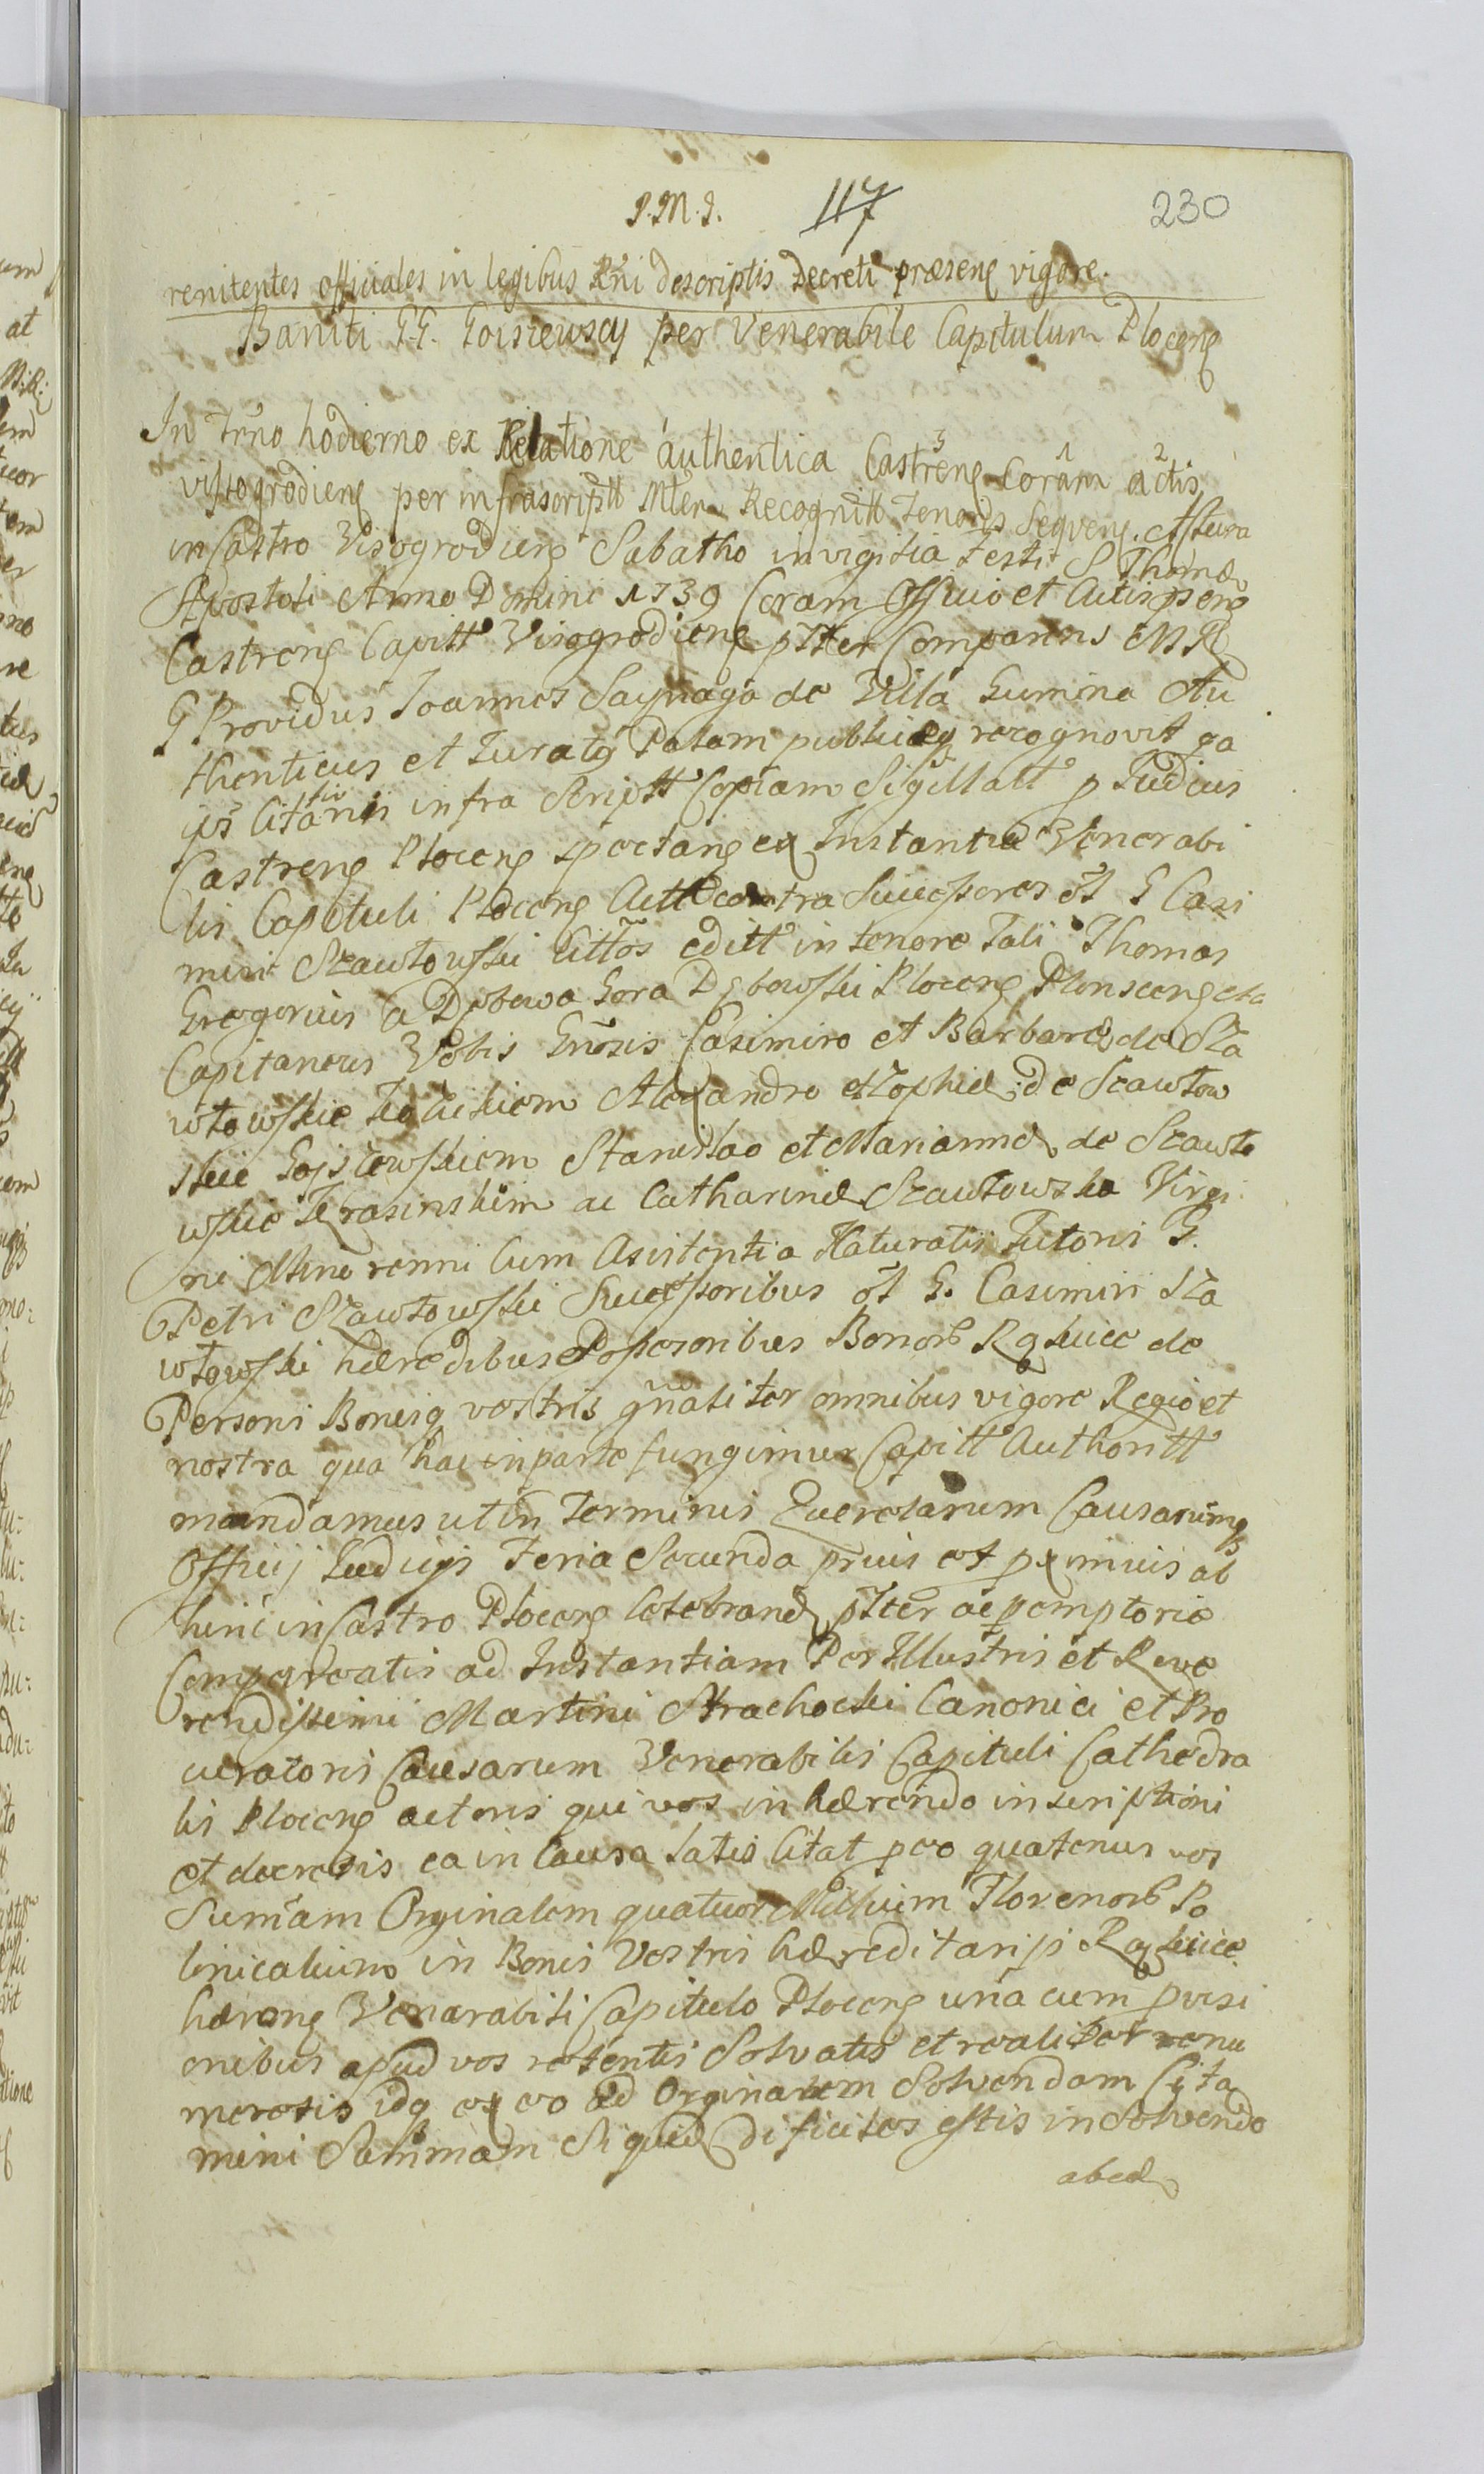 J.M.J. 117 230
renitentes officiales in legibus Rñi descriptis Decreti præsenę vigore.
Baniti GG. Goisiewscy per Venerabile Capitulum Plocenę
In Trño hodierno ex Relatione authentica Castrenę Coram actis
vissogrodienę per infrascriptt Mter Recognitt Tenoris Seqvenę. Actum
in Castro Visogrodienę Sabatho in vigilia Festi S Thomæ
Apostoli Anno Domini 1739 Coram Officio et Actis psenę
Castrenę Capitt Visogrodienę pltter Comparens M R
G Providus Joannes Saynaga de Villa Gumino Au
thenticus et Juratq Palam publicæq recognovit qa
ips Citãnis infra Scriptt Copiam Sigillatt p Judicii
Castrenę Plocenę spectanę ex Instantia Venerabi
lis Capituli Plocenę Actt contra Successores ol G Casi
miri Szawłowski Littõs editt in tenore Tali Thomas
Gregorius a Dębowa Gora Dębowski Plocenę Plonscenę etc
Capitaneus Vobis Gnõsis Casimiro et Barbaræ de Sza
włowskie Alexandro et Zophiæ de Szawłow
skie Gojsiewskiem Stanislao et Mariannæ de Szawło
wskie Krasinskim ac Catharinæ Szawłowska Virgi
ni Minorenni Cum Asistentia Naturalis Tutoris G.
Petri Szawłowski Successoribus ol G. Casimiri Sza
włowski hæredibus Possesoribus Bonorb de
Personis Bonisq vestris gñaliter omnibus vigore Regio et
nostra qua hac in parte fungimur Capitt Authoritt
mandamus ut in Terminis Querelarum Causarumq
Officij Judicijs Feria Secunda prius et pximius ab
hinc in Castro Plocenę Celebrandæ pltter ac pemptorie
Compareatis ad Instantiam Per Illustris et Reve
rendissimi Martini Strachocki Canonici et Pro
curatoris Causarum Venerabilis Capituli Cathedra
lis Plocenę actoris qui vos inhærendo inscriptioni
et decretis ea in Causa latis Citat p eo quatenus vos
Sumãm Orginalem quatuor Millium Florenorb Po
linicalium in Bonis Vestris hæreditarijs
hærenę Venerabili Capitulo Plocenę una cum pvisi
onibus apud vos retentis Solvatis et realiter renu
meretis idq ex eo ad Orginalem Solvendam Cita
mini Sammam Siquid dificiles estis in Solvendo
abeæ